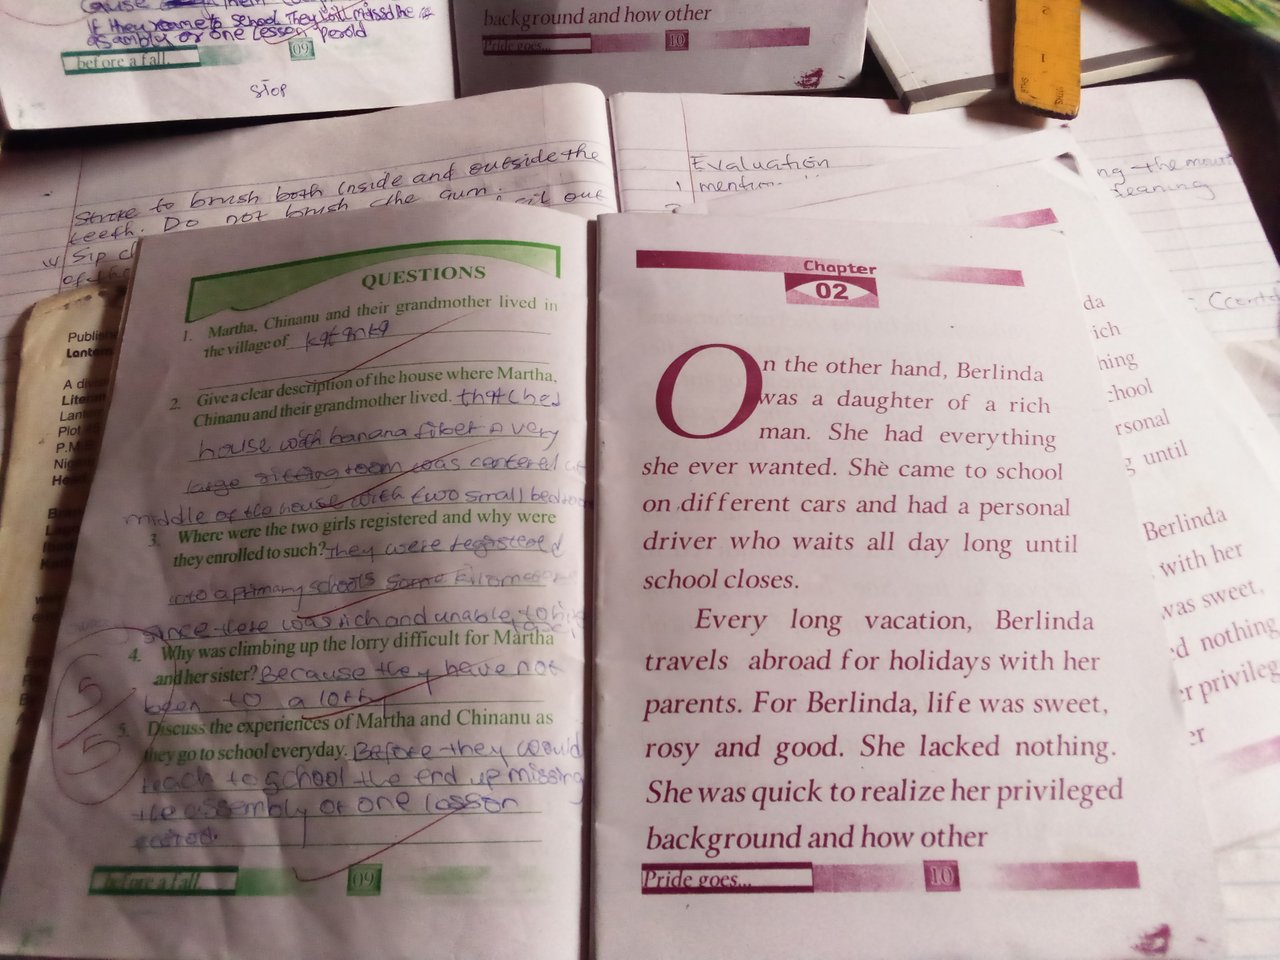 If they came to school They will missed the
assembly or one lesson Perold
before a fall.
09
STOP
background and how other
Pride goes...
10
Stroke to brush both inside and outside the
teeth. Do not brush the gum.
Sip
Evaluation
1 mention
ng the mouth
Published
Lantern
A
Literar
Lanter
Plot
P.M.
Nig
QUESTIONS
1. Martha, Chinanu and their grandmother lived in
the village of
2. Give a clear description of the house where Martha,
Chinanu and their grandmother lived. thatched
house with banana fiber A very
large sitting room was centered
middle of the house with two small bedroom
3. Where were the two girls registered and why were
they enrolled to such? They were registered
into a primary schools some kilometer
since there was rich and unable to
4. Why was climbing up the lorry difficult for Martha
and her sister? Because they have not
been to a
5. Discuss the experiences of Martha and Chinanu as
they go to school everyday. Before they would
reach to school the end up missing
the assembly or one lesson
period.
5/5
before a fall.
09
Chapter
02
On the other hand, Berlinda
was a daughter of a rich
man. She had everything
she ever wanted. She came to school
on different cars and had a personal
driver who waits all day long until
school closes.
Every long vacation, Berlinda
travels abroad for holidays with her
parents. For Berlinda, life was sweet,
rosy and good. She lacked nothing.
She was quick to realize her privileged
background and how other
Pride goes...
10
da
ich
hing
chool
rsonal
g until
Berlinda
with her
was sweet,
d nothing
r privileg
er